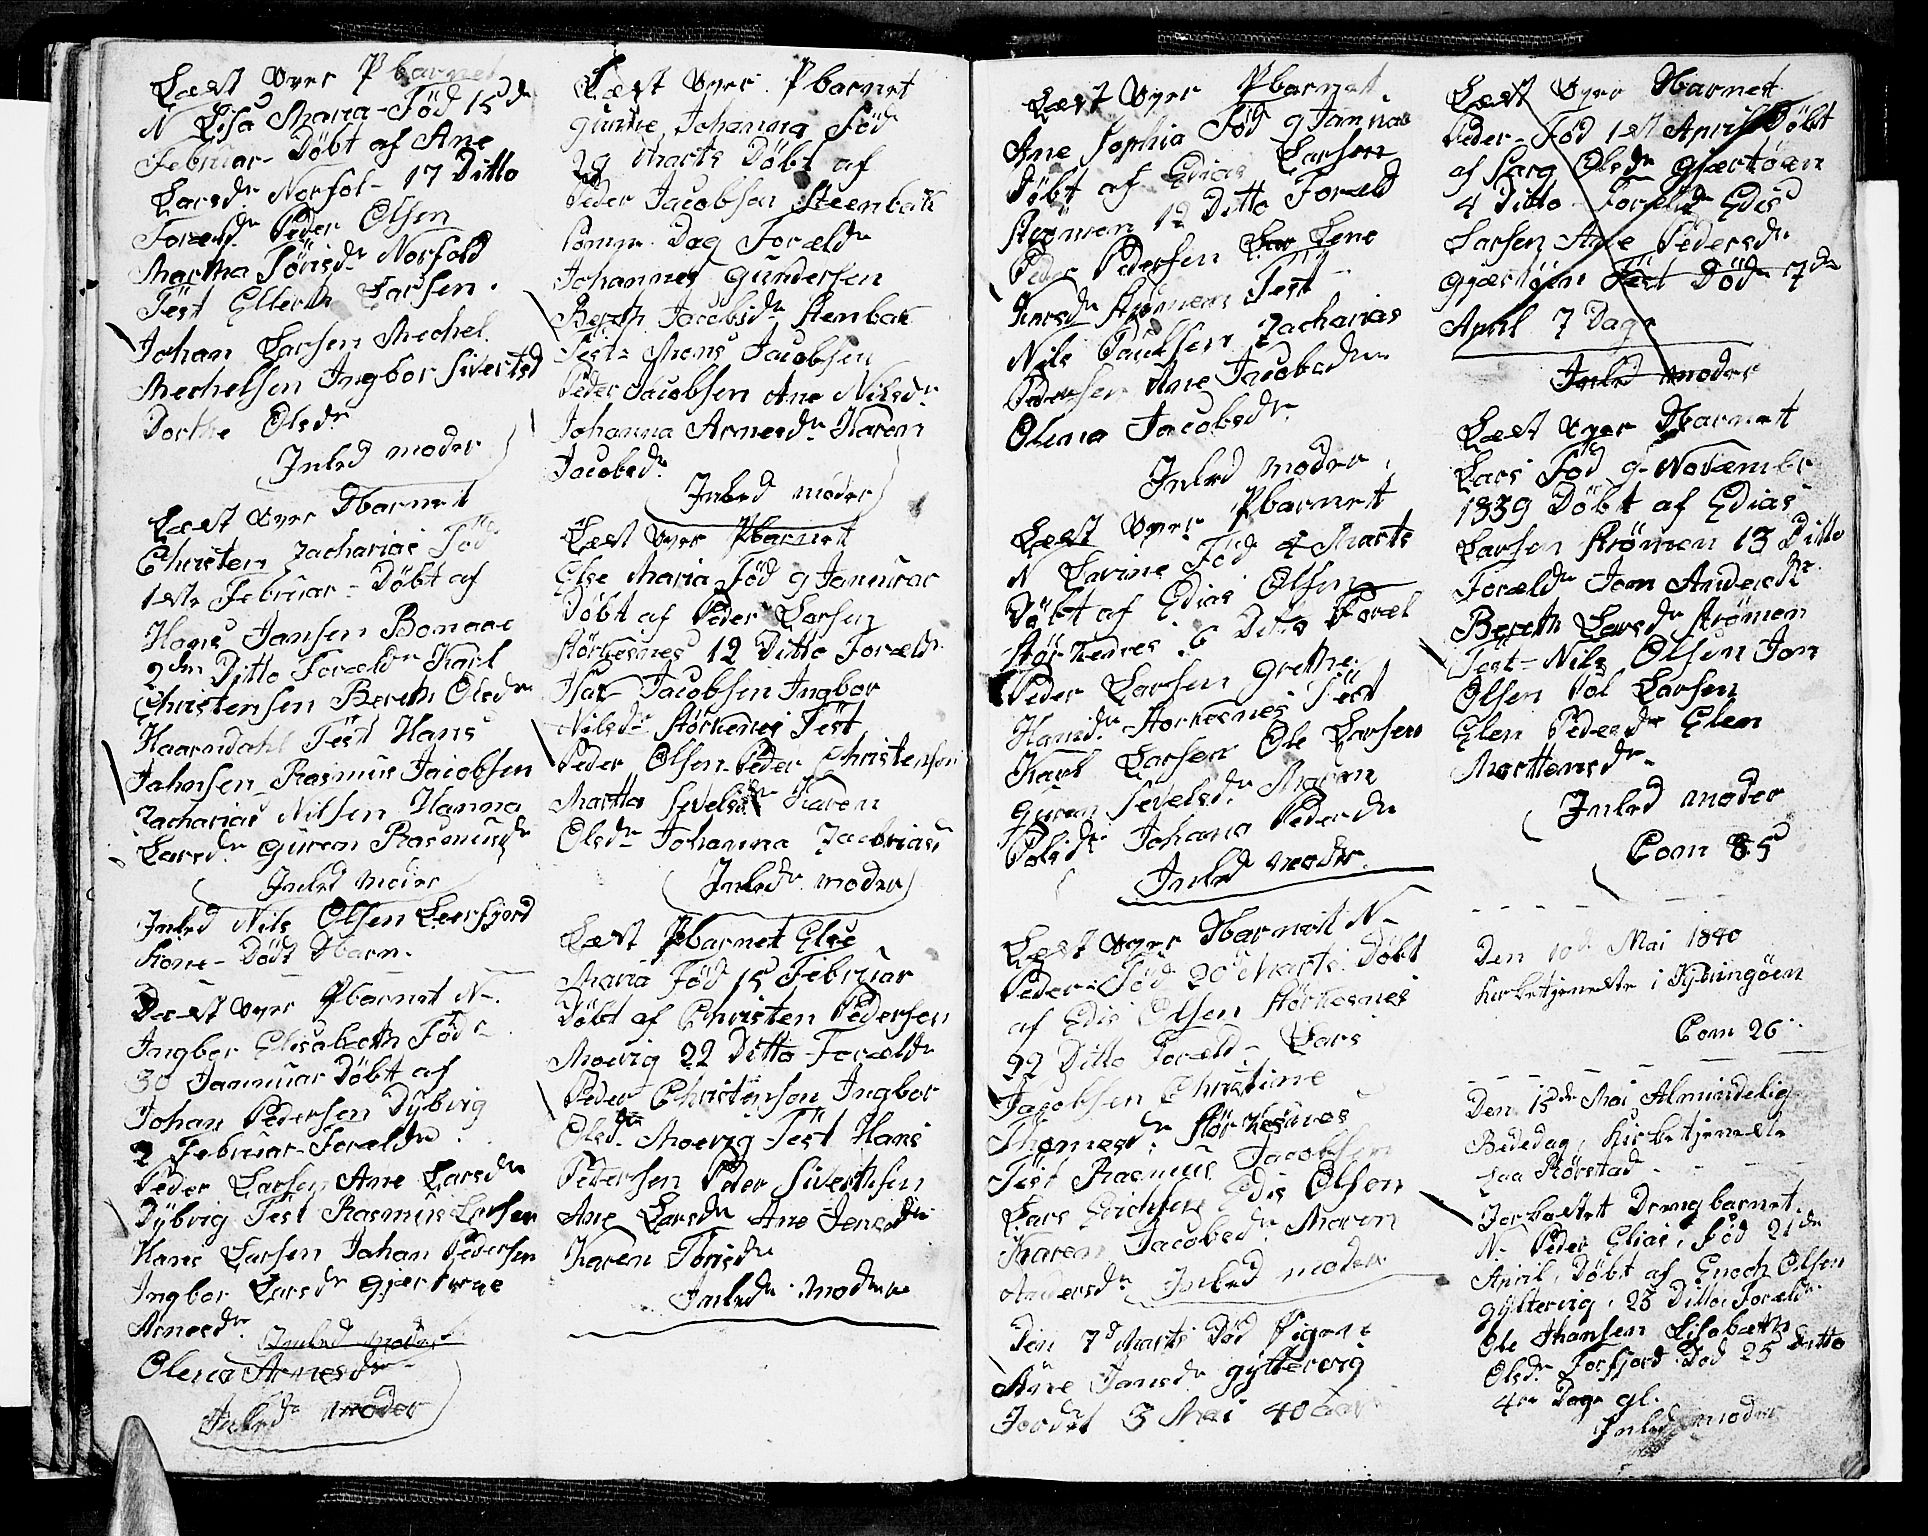 Læst over Pbarnet
N Lisa Maria - Fød 15de
Februar - Døbt af Ane
Larsdr Norfol - 17 Ditto
Foræld. Peder Olsen
Martha Jörisdr Norfold
Test Ellert Larsen.
Johan Larsen Mechel
Mechelsen Ingbor Sivertsd
Dorthe Olsdr
Inled moder
Læst over Dbarnet
Christen Zacharias Fød
1ste Februar - Døbt af
Hans Jansen Bomaae
2den Ditto Forældr Karl
Christensen Bereth Olsdr
Haarndahl Test Hans
Jahnsen Rasmus Jacobsen
Zacharias Nilsen Hanna
Larsdr Guren Rasmusdr
Inled moder
Inled Nils Olsen Leersfjord
Kone - Dødt Dbarn.
Læst over Pbarnet N-
Ingbor Elisabeth Fød
30 Januar Døbt af
Johan Pedersen Dybvig
2 Februar - Forældr
Peder Larsen Ane Larsdr
Dybvig Test Rasmus Larsen
Hans Larsen Johan Pedersen
Ingbor Larsdr Gjertrue
Arnesdr. Inled moder
Olena Arnesdr
Inled moder
Læst over Pbarnet
Gunne Johanna Fød
29 Marts Døbt af
Peder Jacobsen Steenbak
Somm. Dag Forældr
Johannes Gundersen
Bereth Jacobsdr Stenbak
Test - Mons Jacobsen
Peder Jacobsen Ane Nilsdr
Johanna Arnesdr Karen
Jacobsdr
Inled moder
Læst over Pbarnet
Else Maria Fød 9 Januar
Døbt af Peder Larsen
Störkesnes 12 Ditto Forældr
Jacobsen Ingbor
Nilsdr Störkenes Test
Peder Olsen - Peder Christensen
Martha Sivelsdr Karen
Olsdr Johanna Zachrias
Inled moder
Læst Pbarnet Else
Maria Fød 15 Februar
Døbt af Christen Pedersen
Moevig 22 Ditto - Forældr
Peder Christensen Ingbor
Olsdr Moevig - Test Hans
Pedersen Peder Siverthsen
Ane Larsdr Ane Jensdr
Karen Thorisdr
Inled moder
Læst over Pbarnet
Ane Sophia Fød 9 Januar
Døbt af Edias Larsen
Strømen 12 Ditto Foræld
Peder Pedersen Lene
Larsdr Strømen Test -
Nils Paulsen Zacharias
Pedersen Ane Jacobsdr
Olena Jacobsdr
Inled moder
Læst over Pbarnet
N Lavine Fød 4 Marts
Døbt af Edias Olsen
Störkenes 6 Ditto Foræl
Peder Larsen Grethe
Hansdr Storkesnes Test
Karl Larsen Ole Larsen
Guren Sevelsdr Maren
Polsdr Johana Pedersdr
Inled moder.
Læst over Dbarnet N-
Peder - Fød 20 Marts Døbt
af Edis Olsen Störkesnes
22 Ditto Foræld - Lars
Jacobsen Christine
Thomasdr Störkesnæs
Test Rasmus Jacobsen
Lars Erichsen Edis Olsen
Karen Jacobsdr Maren
Andersdr Inled moder
Den 7d Marts Død Pigen
Ane Jansdr Gyltervig
Jordet 3 Mai 40 aar
Læst over Dbarnet
Peder - Fød 1st April Døbt
af Olsdr Gjærtøen
4 Ditto - Forældr Edis
Larsen Ane Pedersdr
Gjærtøen Test Død 7de
April 7 Dage
Inled moder
Læst over Dbarnet
Lars Fød 9 - Novæmbr
1839 Døbt af Edias
Larsen Strømen 13 Ditto
Forældr Jon Anders
Bereth Larsdr Strømen
Test - Nils Olsen Jon
Olsen Pol Larsen
Elen Pedersdr Elen
Mortensdr
Inled moder
Com 85
Den 10de Mai 1840
Kirketjeneste i Kjæringøen
Com 26
Den 15de Mai Almindelig
Bededag, Kirketjeneste
paa Rörstad
Jordkastet Drengbarnet
N- Peder Elias, Fød 21de
April, Døbt af Enoch Olsen
Gyltervig, 25 Ditto, Forældr
Ole Jhansen Lisabæth
Olsdr Forfjord Død 25 Ditto
4re Dage gl.
Inled moder